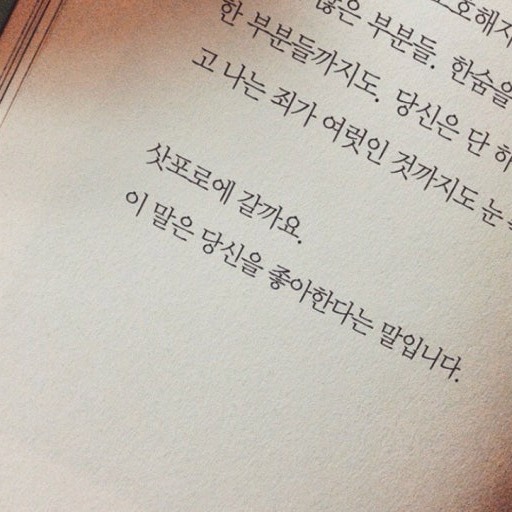 않은 부분들. 한숨을
한 부분들까지도. 당신은 단 하
고 나는 죄가 여럿인 것까지도 눈
삿포로에 갈까요.
이 말은 당신을 좋아한다는 말입니다.